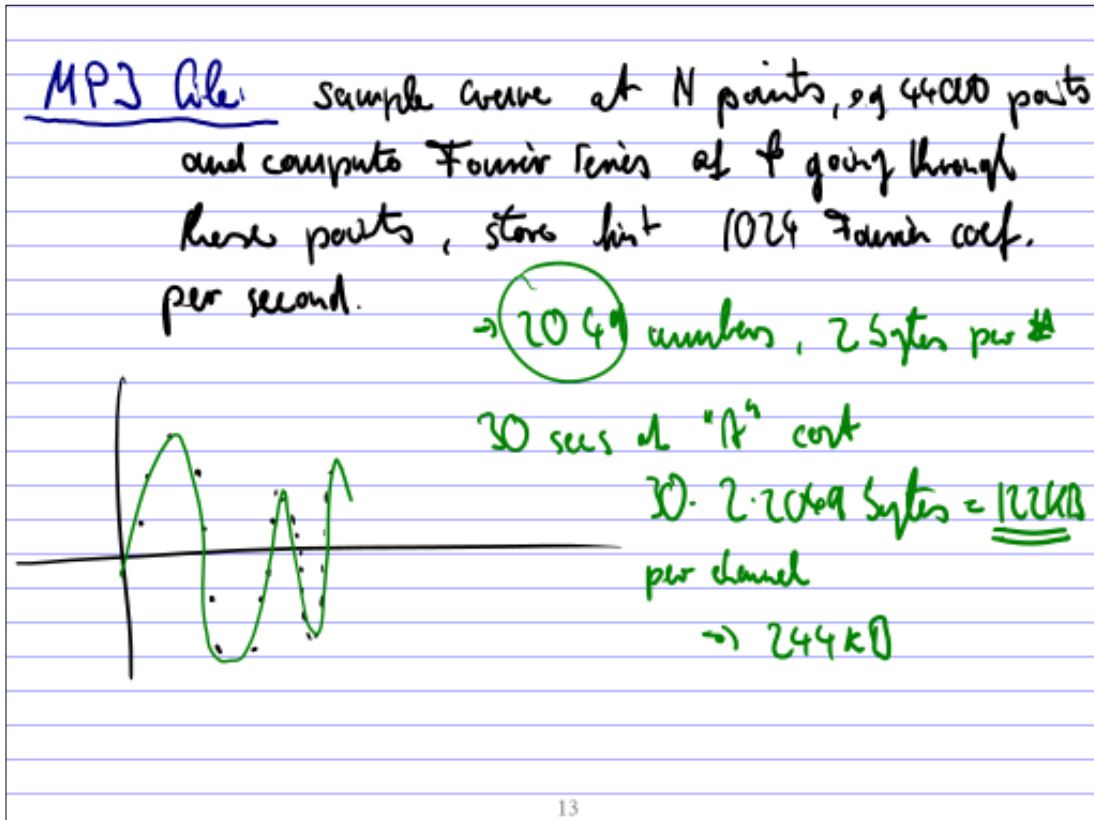 MP3 file: sample curve at N points, eg 44000 points
and compute Fourier series of f going through
these points, store first 1024 Fourier coef.
per second.
⇒ 2049 numbers, 2 bytes per #
30 secs of "A" cost
30 · 2 · 2049 bytes = 122KB
per channel
⇒ 244KB
13